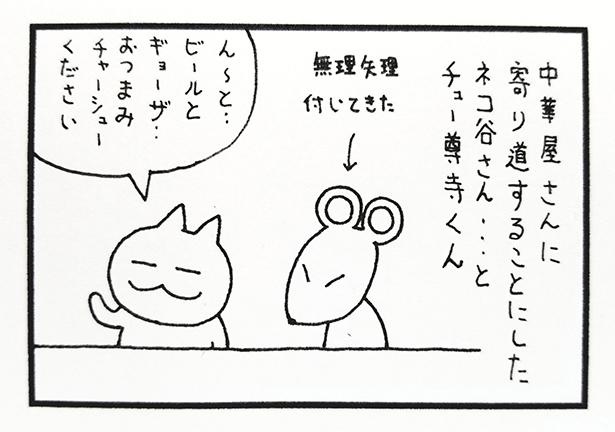 中華屋さんに
寄り道することにした
ネコ谷さん・・・と
チュー尊寺くん
無理矢理
付いてきた
ん〜と‥
ビールと
ギョーザ‥
おつまみ
チャーシュー
ください